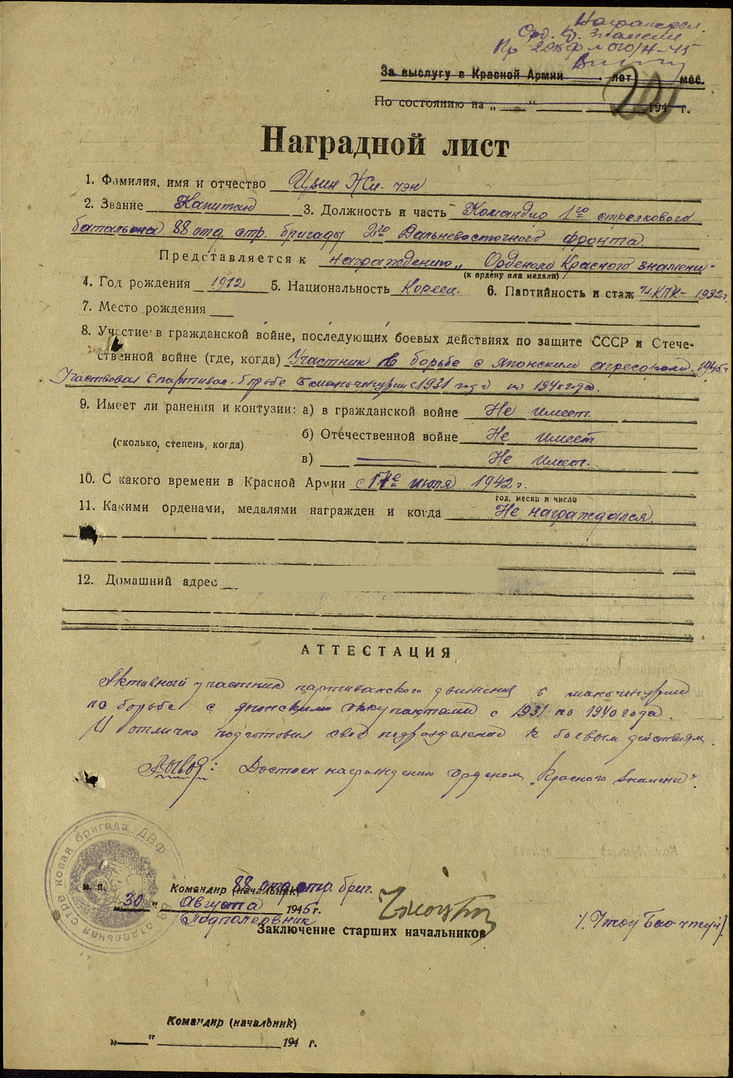 Награжден
Орд. Кр. Знамени
Пр 2ДВФ № 010/Н-45
За выслугу в Красной Армии лет мес.
По состоянию на „ “ 194 г.
Наградной лист
1. Фамилия, имя и отчество Цзин Жи-чэн
2. Звание Капитан 3. Должность и часть Командир 1го стрелкового
батальона 88 отд. стр. бригады 2го Дальневосточного фронта
Представляется к награждению „Орденом Красного знамени“
(к ордену или медали)
4. Год рождения 1912 5. Национальность Кореец 6. Партийность и стаж чл КПК-1932г
7. Место рождения
8. Участие в гражданской войне, последующих боевых действиях по защите СССР и Отече-
ственной войне (где, когда) Участник в борьбе с японским агресорами 1945г
Участвовал в партизан. борьбе в маньчжурии с 1931 год по 1940 года.
9. Имеет ли ранения и контузии: а) в гражданской войне Не имеет.
(сколько, степень, когда) б) Отечественной войне Не имеет
в) Не имеет.
10. С какого времени в Красной Армии с 17го июля 1942 г.
год, месяц и число
11. Какими орденами, медалями награжден и когда Не награждался
12. Домашний адрес
АТТЕСТАЦИЯ
Активный участник партизанского движения в маньчжурии
по борьбе с японскими оккупантами с 1931 по 1940 года.
И отлично подготовил свое подразделение к боевым действиям.
Вывод: Достоен награждению орденом „Красного Знамени“.
отдельная стрелковая бригада ДВФ
м. п. Командир (начальник) 88 отд. стр. бриг.
„30“ Августа 1945 г.
Подполковник
/Чжоу Бао-чжун/
Заключение старших начальников
Командир (начальник)
„ “ 194 г.